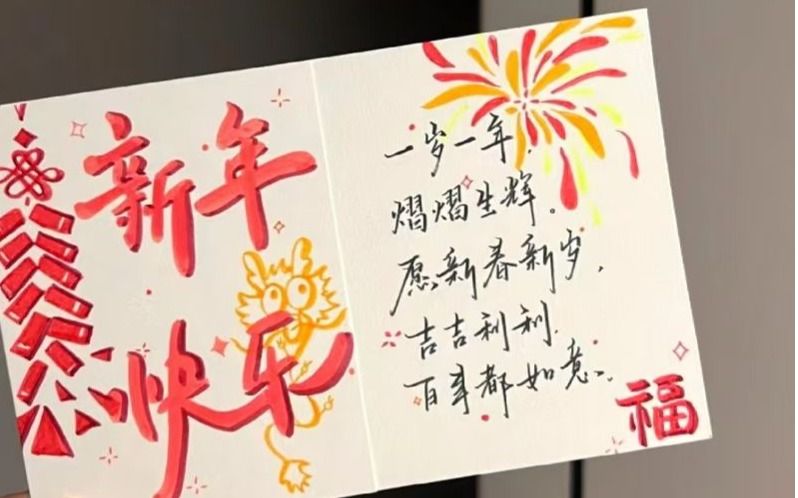 新年
快乐
一岁一年，
熠熠生辉。
愿新春新岁，
吉吉利利，
百事都如意。
福